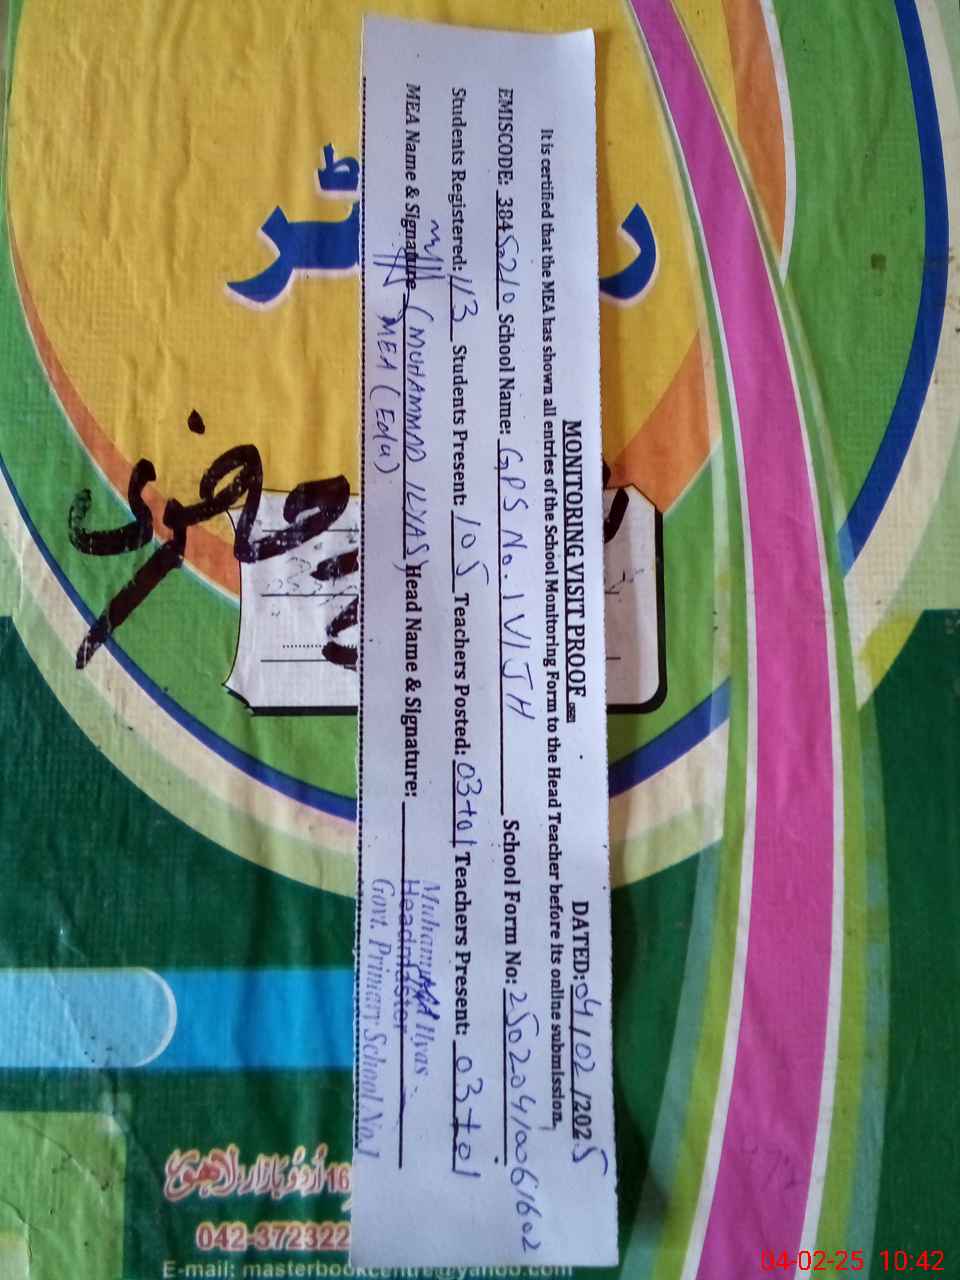 MONITORING VISIT PROOF
DATED: 04/02/2025
It is certified that the MEA has shown all entries of the School Monitoring Form to the Head Teacher before its online submission.
EMISCODE: 3845210 School Name: GPS No. 1 VIJH School Form No: 25020410061602
Students Registered: 113 Students Present: 105 Teachers Posted: 03+01 Teachers Present: 03+01
MEA Name & Signature (MUHAMMAD ILYAS) Head Name & Signature:
MEA (Edu)
Muhammad Ilyas
Headmaster
Govt. Primary School No.1
042-372322
E-mail: masterbookcentre@yahoo.com
04-02-25 10:42